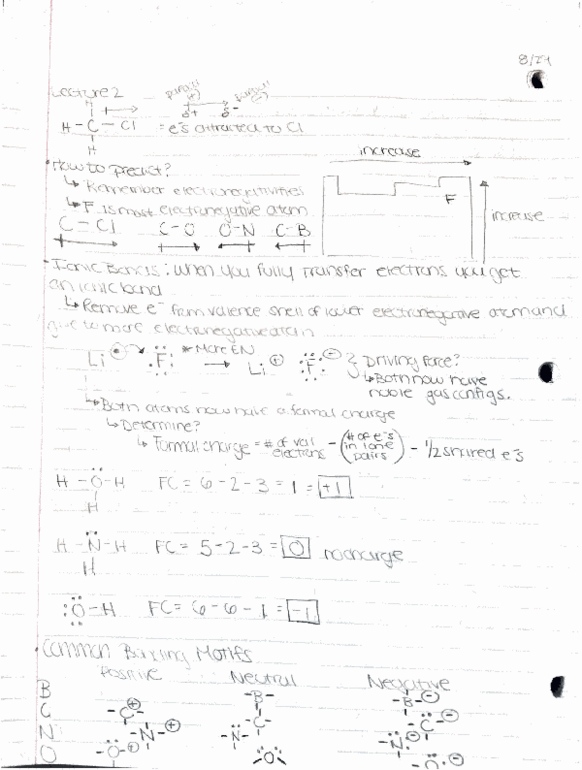 8/24
Lecture 2
partial (+) partial (-)
δ+ δ-
H
H-C-Cl = e⁻s attracted to Cl
H
increase
• How to predict?
↳ Remember electronegativities
↳ F is most electronegative atom
F
increase
C-Cl C-O O-N C-B
• Ionic Bonds: when you fully transfer electrons you get
an ionic bond
↳ Remove e⁻ from valence shell of lower electronegative atom and
give to more electronegative atom
Li • :F: * More EN → Li ⊕ :F: ⊖ } Driving force?
↳ Both now have
noble gas configs.
↳ Both atoms now have a formal charge
↳ Determine?
↳ Formal charge = # of val electrons - (# of e⁻s in lone pairs) - 1/2 shared e⁻s
H-Ö-H FC = 6-2-3 = 1 = +1
H
H-N̈-H FC = 5-2-3 = 0 no charge
H
:Ö-H FC = 6-6-1 = -1
• Common Bonding Motifs
Positive Neutral Negative
B -B- -B- ⊖
C -C- ⊕ -C- -C- ⊖
N -N- ⊕ -N- -N- ⊖
O -O- ⊕ O -O: ⊖